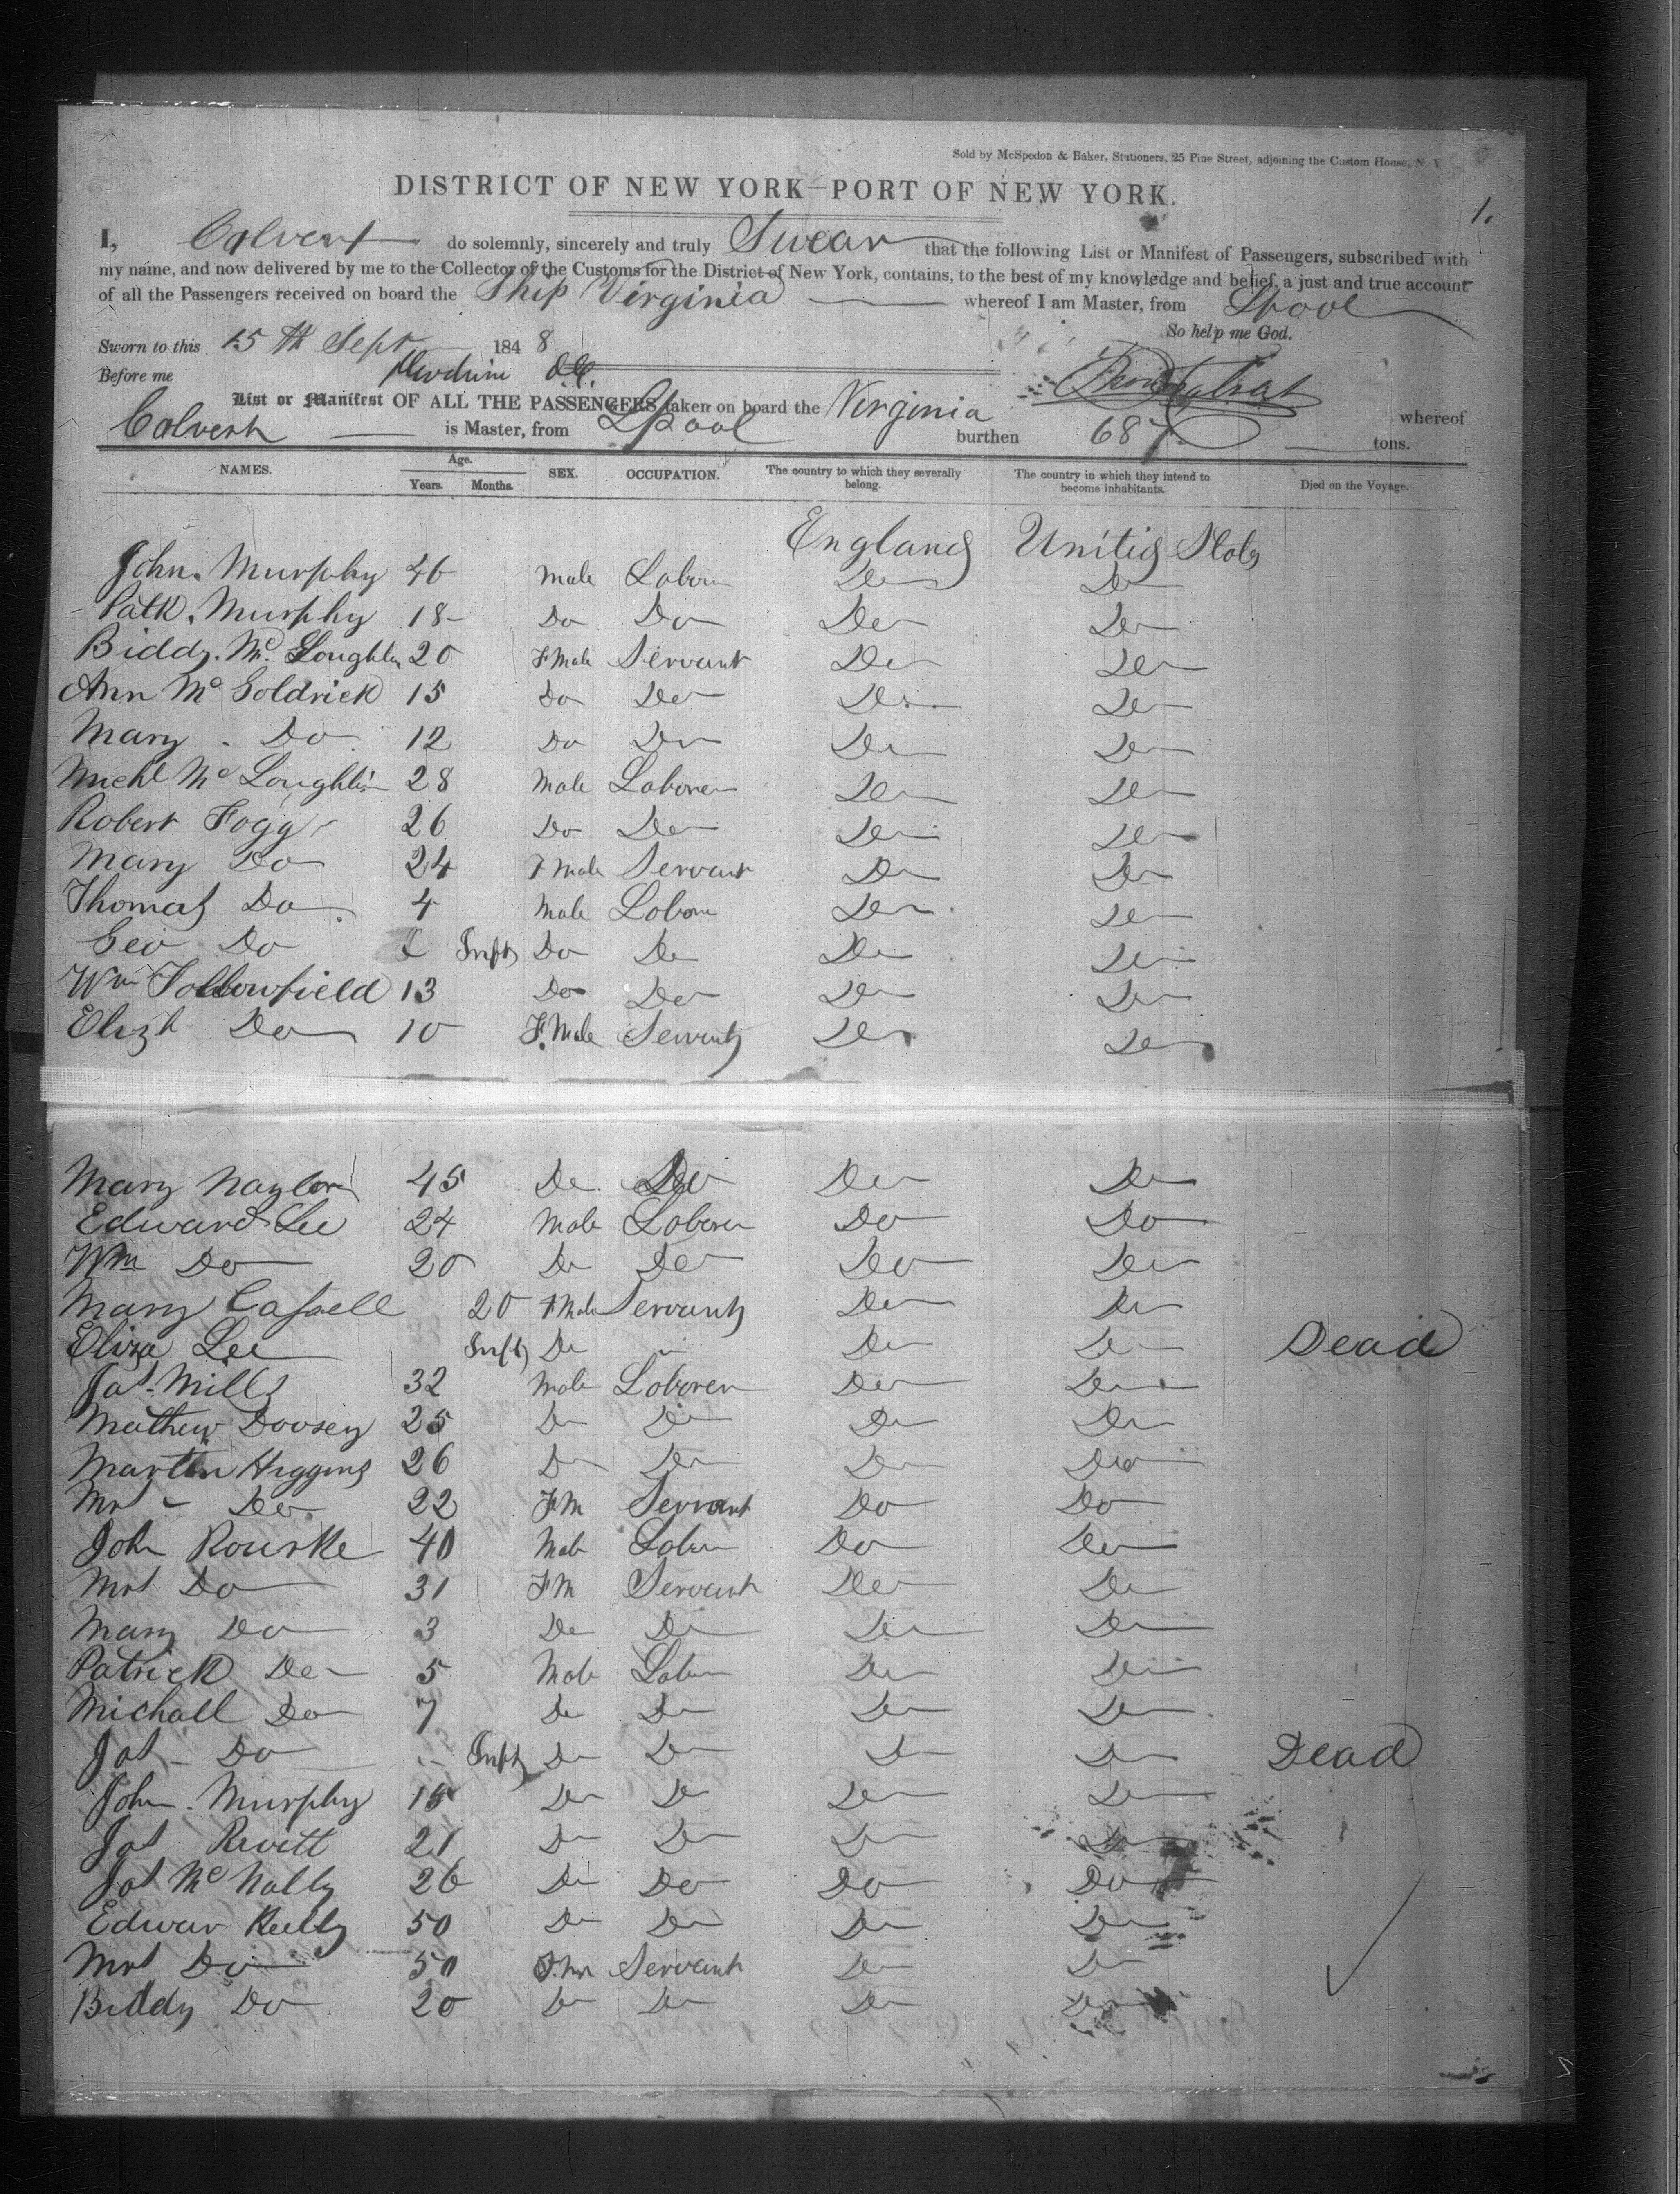 Sold by McSpedon & Baker, Stationers, 25 Pine Street, adjoining the Custom House, N. Y.
DISTRICT OF NEW YORK—PORT OF NEW YORK.
1.
I, Calvert do solemnly, sincerely and truly Swear that the following List or Manifest of Passengers, subscribed with
my name, and now delivered by me to the Collector of the Customs for the District of New York, contains, to the best of my knowledge and belief, a just and true account
of all the Passengers received on board the Ship Virginia whereof I am Master, from Lpool
So help me God.
Sworn to this 15th Sept 1848
Before me
List or Manifest OF ALL THE PASSENGERS taken on board the Virginia whereof
Calvert is Master, from Lpool burthen 687 tons.
NAMES. Age. Years. Months. SEX. OCCUPATION. The country to which they severally belong. The country in which they intend to become inhabitants. Died on the Voyage.
England United States
John Murphy 46 Male Labourer Do Do
Patk. Murphy 18 Do Do Do Do
Biddy Mc Loughlin 20 F Male Servant Do Do
Ann Mc Goldrick 15 Do Do Do Do
Mary Do 12 Do Do Do Do
Michl Mc Loughlin 28 Male Laborer Do Do
Robert Fogg 26 Do Do Do Do
Mary Do 24 F Male Servant Do Do
Thomas Do 4 Male Labore Do Do
Geo Do Inft Do Do Do Do
Wm Tollowfield 13 Do Do Do Do
Elizh Do 10 F. Male Servant Do Do
Mary Naylor 45 Do Do Do Do
Edward Lee 24 Male Laborer Do Do
Wm Do 20 Do Do Do Do
Mary Cassell 20 F Male Servant Do Do
Eliza Lee Inft Do Do Do Dead
Jas. Mills 32 Male Laborer Do Do
Mathew Doosey 25 Do Do Do Do
Martin Higgins 26 Do Do Do Do
Mrs - Do 22 FM Servant Do Do
John Rourke 40 Male Labor Do Do
Mrs Do 31 FM Servant Do Do
Mary Do 3 Do Do Do Do
Patrick Do 5 Male Labor Do Do
Michall Do 7 Do Do Do Do
Jas - Do Inft Do Do Do Do Dead
John Murphy 15 Do Do Do Do
Jas Revitt 21 Do Do Do Do
Jas Mc Nally 26 Do Do Do Do
Edwar Reilly 50 Do Do Do Do
Mrs Do 50 F.M Servant Do Do
Biddy Do 20 Do Do Do Do